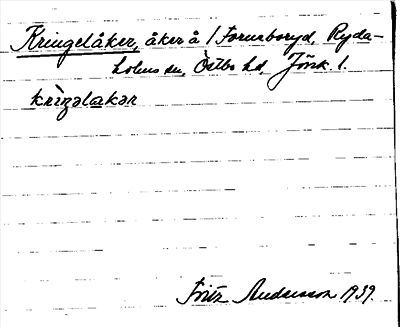 Kringelåker, åker å 1 Fornaboryd, Ryda-
holms sn, Östbo hd, Jönk. l.
krìŋəlakər
Fritz Andersson 1939.